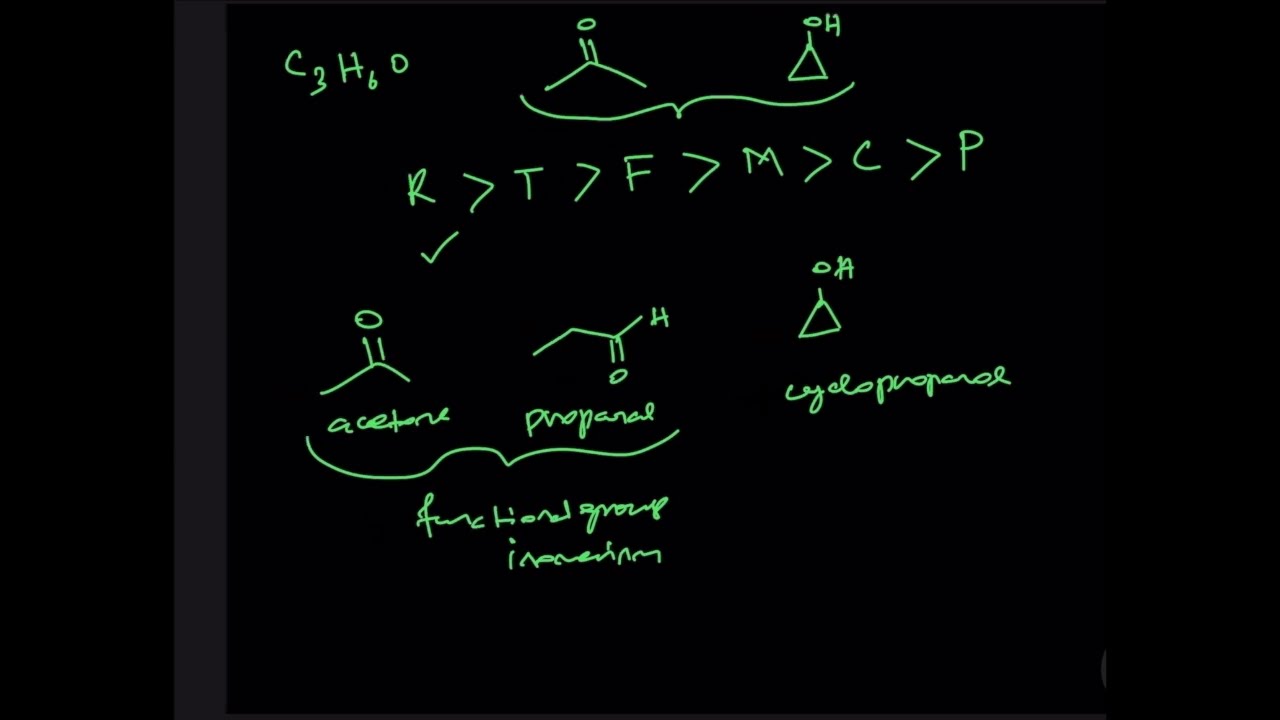 C₃H₆O
O OH
R > T > F > M > C > P
OH
O H
O
acetone propanal cyclopropanol
functional group
isomerism